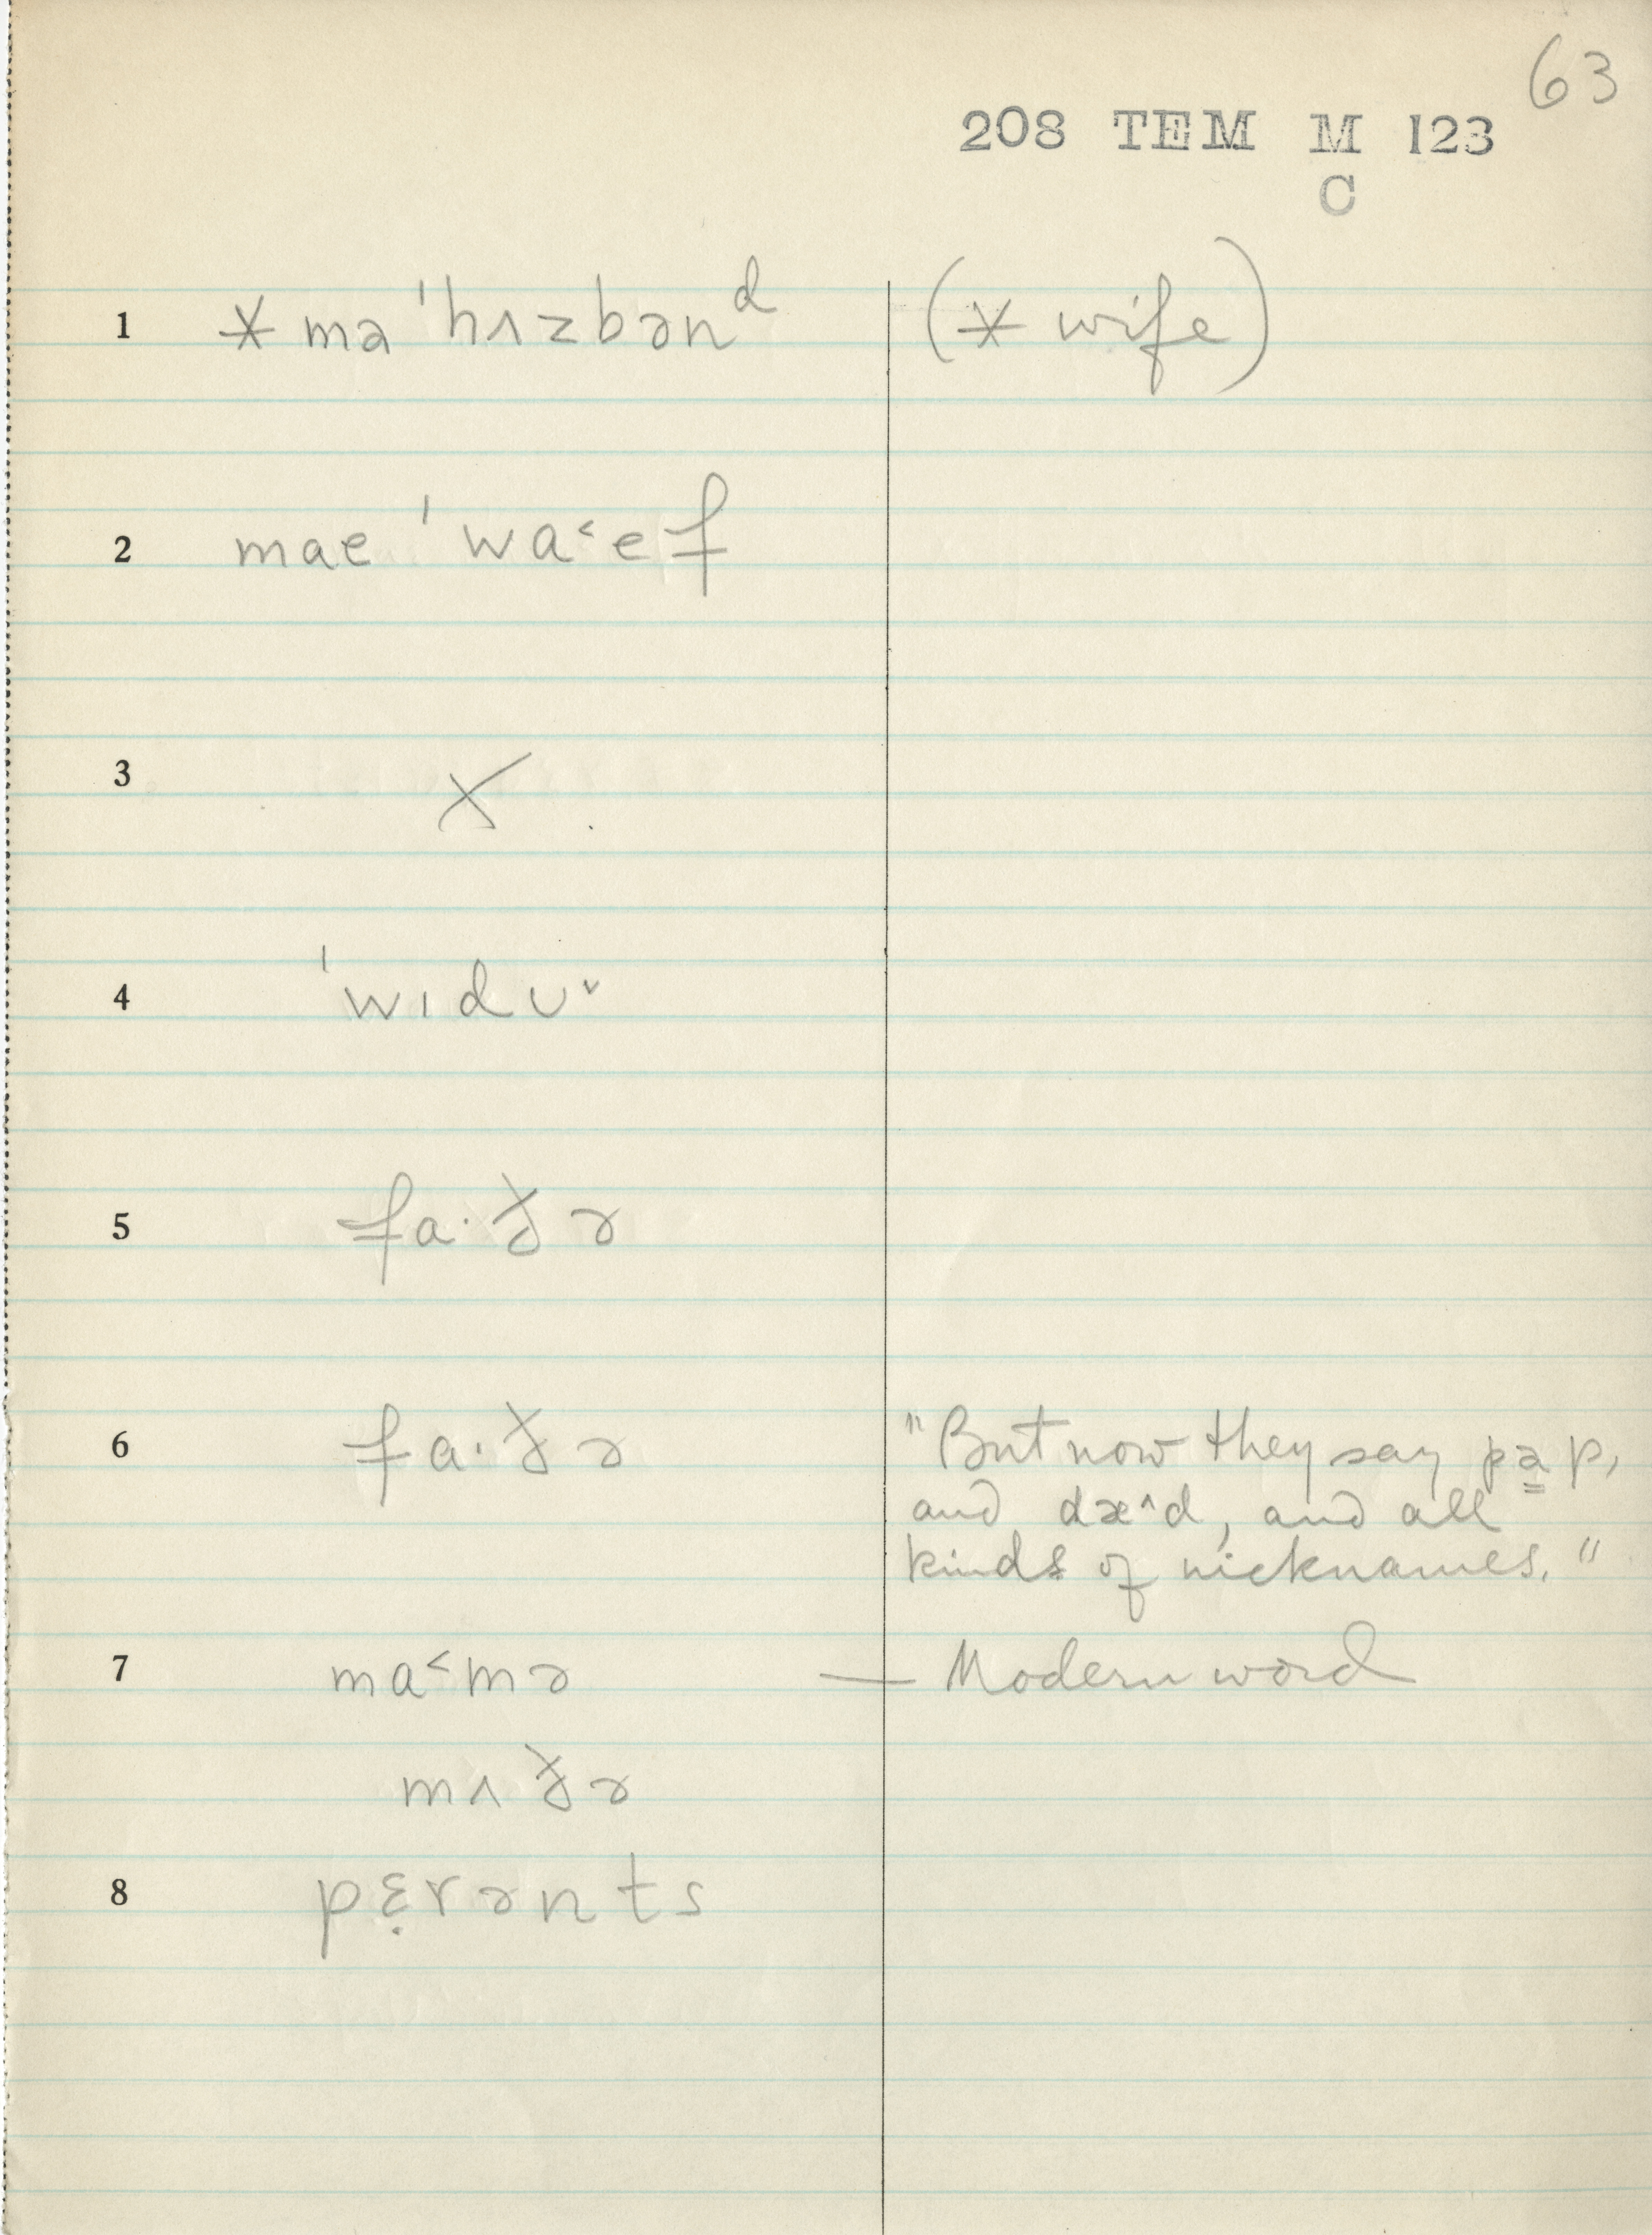 63
208 TEM M 123
C
1 * mə ˈhʌzbənᵈ (* wife)
2 mae ˈwa˂ef
3 X
4 ˈwɪdʊ˅
5 fa·ðə
6 fa·ðə "But now they say pa̳p,
and dæ^d, and all
kinds of nicknames."
7 ma˂mə — Modern word
mʌðə
8 pɛ̣rənts